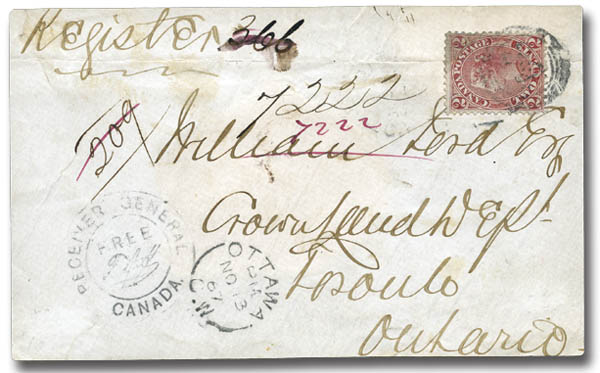 Register 366
7222
209 7222
William Ford Esq
Crown Land Dept
Toronto
Ontario
CANADA POSTAGE
RECEIVER GENERAL
FREE
CANADA
OTTAWA
PM
NO 13
67
C.W.